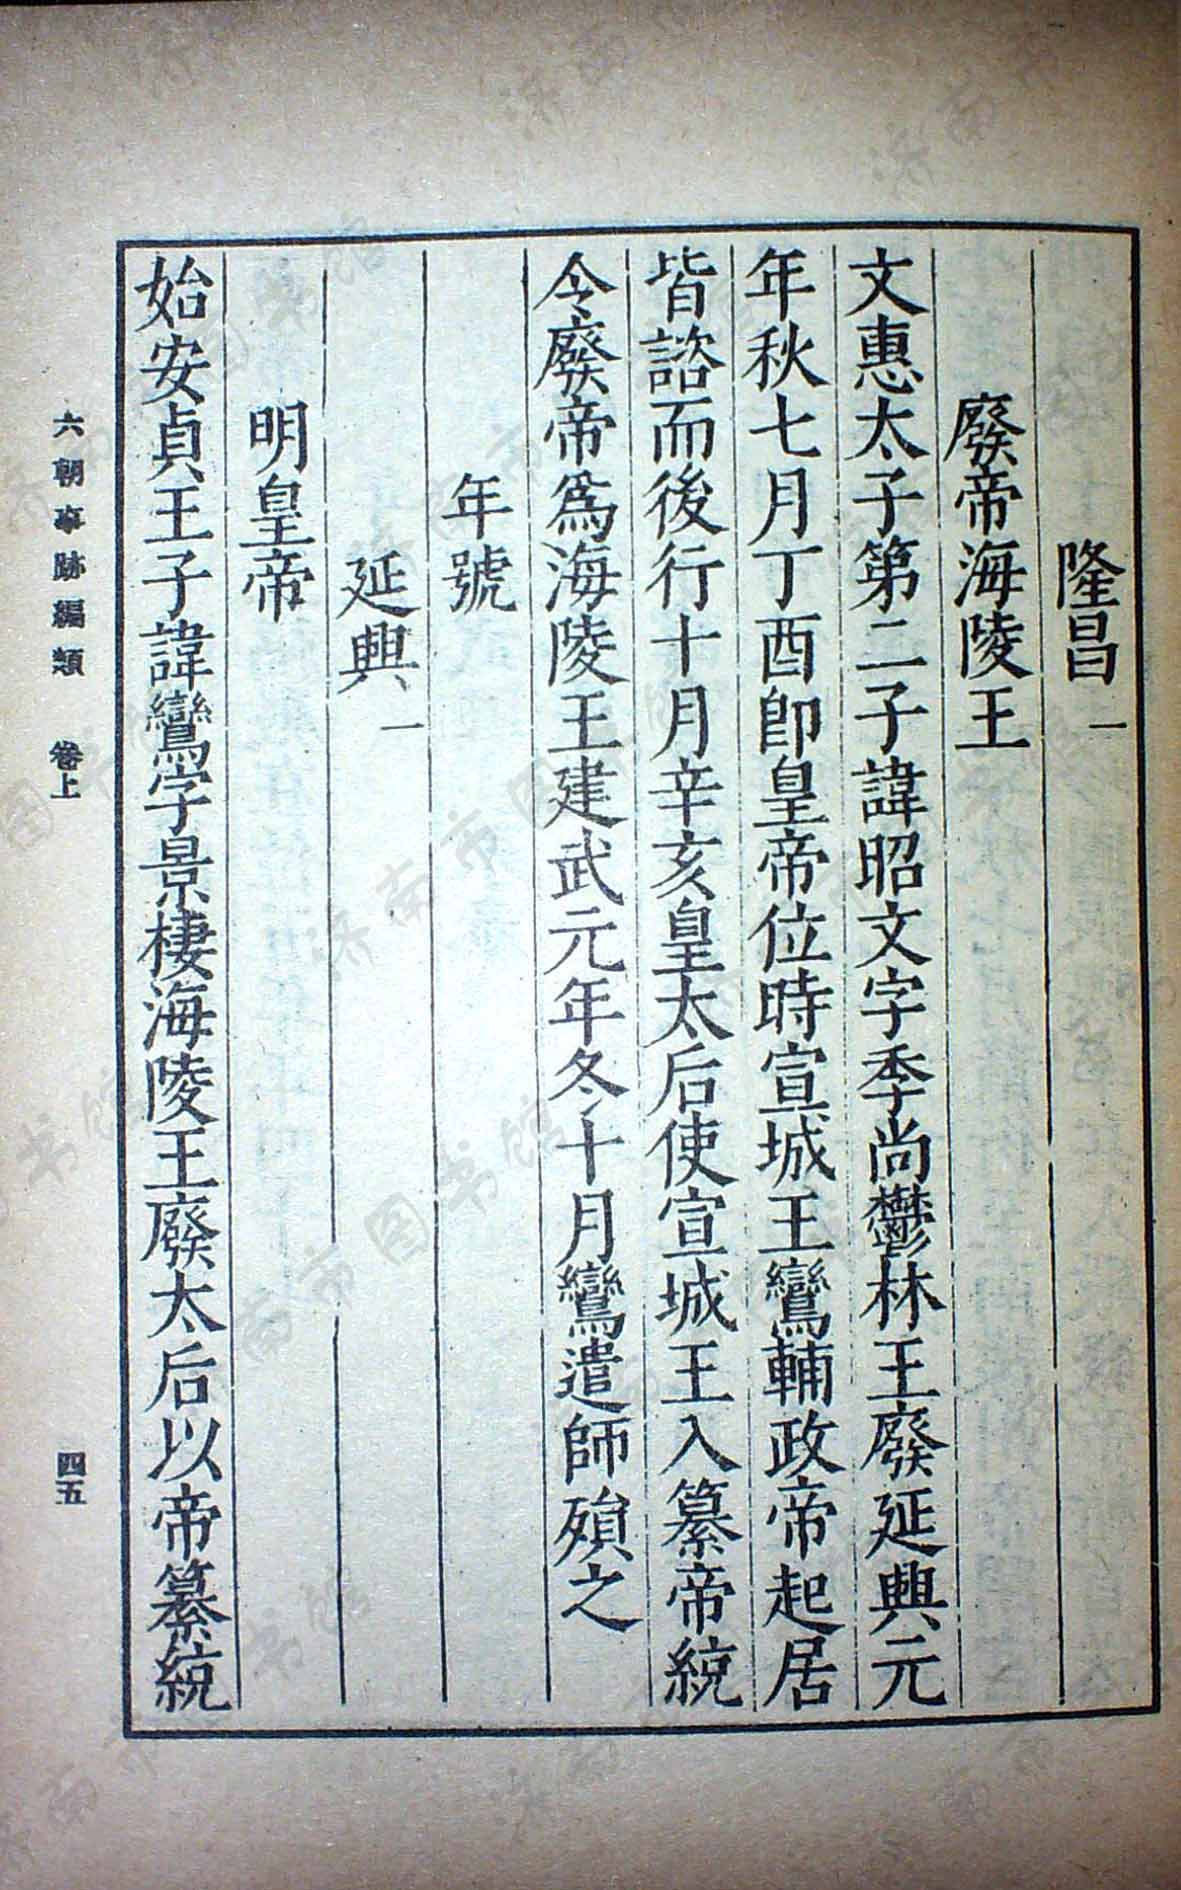 隆昌一
廢帝海陵王
文惠太子第二子諱昭文字季尚鬱林王廢延興元
年秋七月丁酉卽皇帝位時宣城王鸞輔政帝起居
皆諮而後行十月辛亥皇太后使宣城王入纂帝統
令廢帝爲海陵王建武元年冬十月鸞遣師殞之
年號
延興一
明皇帝
始安貞王子諱鸞字景棲海陵王廢太后以帝纂統
六朝事跡編類 卷上 四五
济南市图书馆